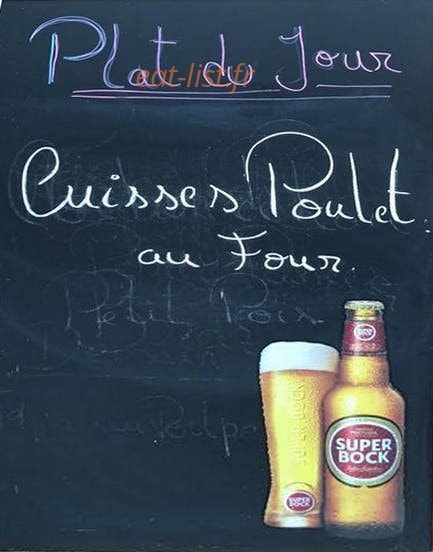 Plat du Jour
eat-list.fr
Cuisses Poulet.
au Four.
Petit Pois
SUPER BOCK
SUPER
BOCK
SUPER
BOCK